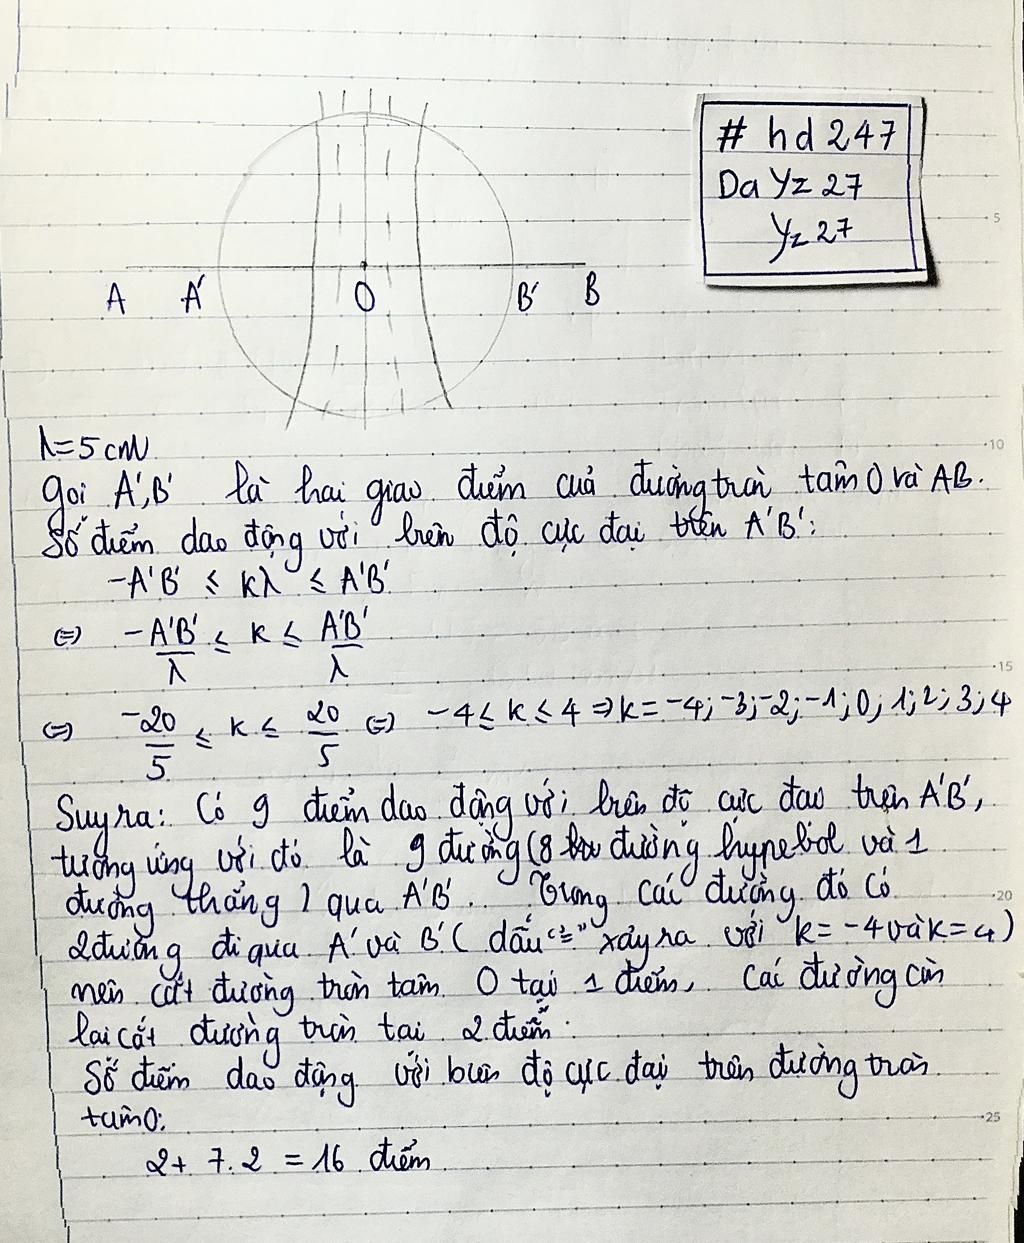 # hd 247
Da Yz 27
Yz 27
A A' O B' B
λ=5 cm
gọi A',B' là hai giao điểm của đường tròn tâm O và AB.
Số điểm dao động với biên độ cực đại trên A'B':
-A'B' ≤ kλ ≤ A'B'
(=) -A'B'/λ ≤ k ≤ A'B'/λ
(=) -20/5 ≤ k ≤ 20/5 (=) -4 ≤ k ≤ 4 ⇒ k = -4; -3; -2; -1; 0; 1; 2; 3; 4
Suy ra: Có 9 điểm dao động với biên độ cực đao trên A'B',
tương ứng với đó là 9 đường (8 đường hypebol và 1
đường thẳng) qua A'B'. Trong các đường đó có
2 đường đi qua A' và B' (dấu "=" xảy ra với k = -4 và k = 4)
nên cắt đường tròn tâm O tại 1 điểm, các đường còn
lại cắt đường tròn tại 2 điểm.
Số điểm dao động với biên độ cực đại trên đường tròn
tâm O:
2 + 7.2 = 16 điểm
5
10
15
20
25